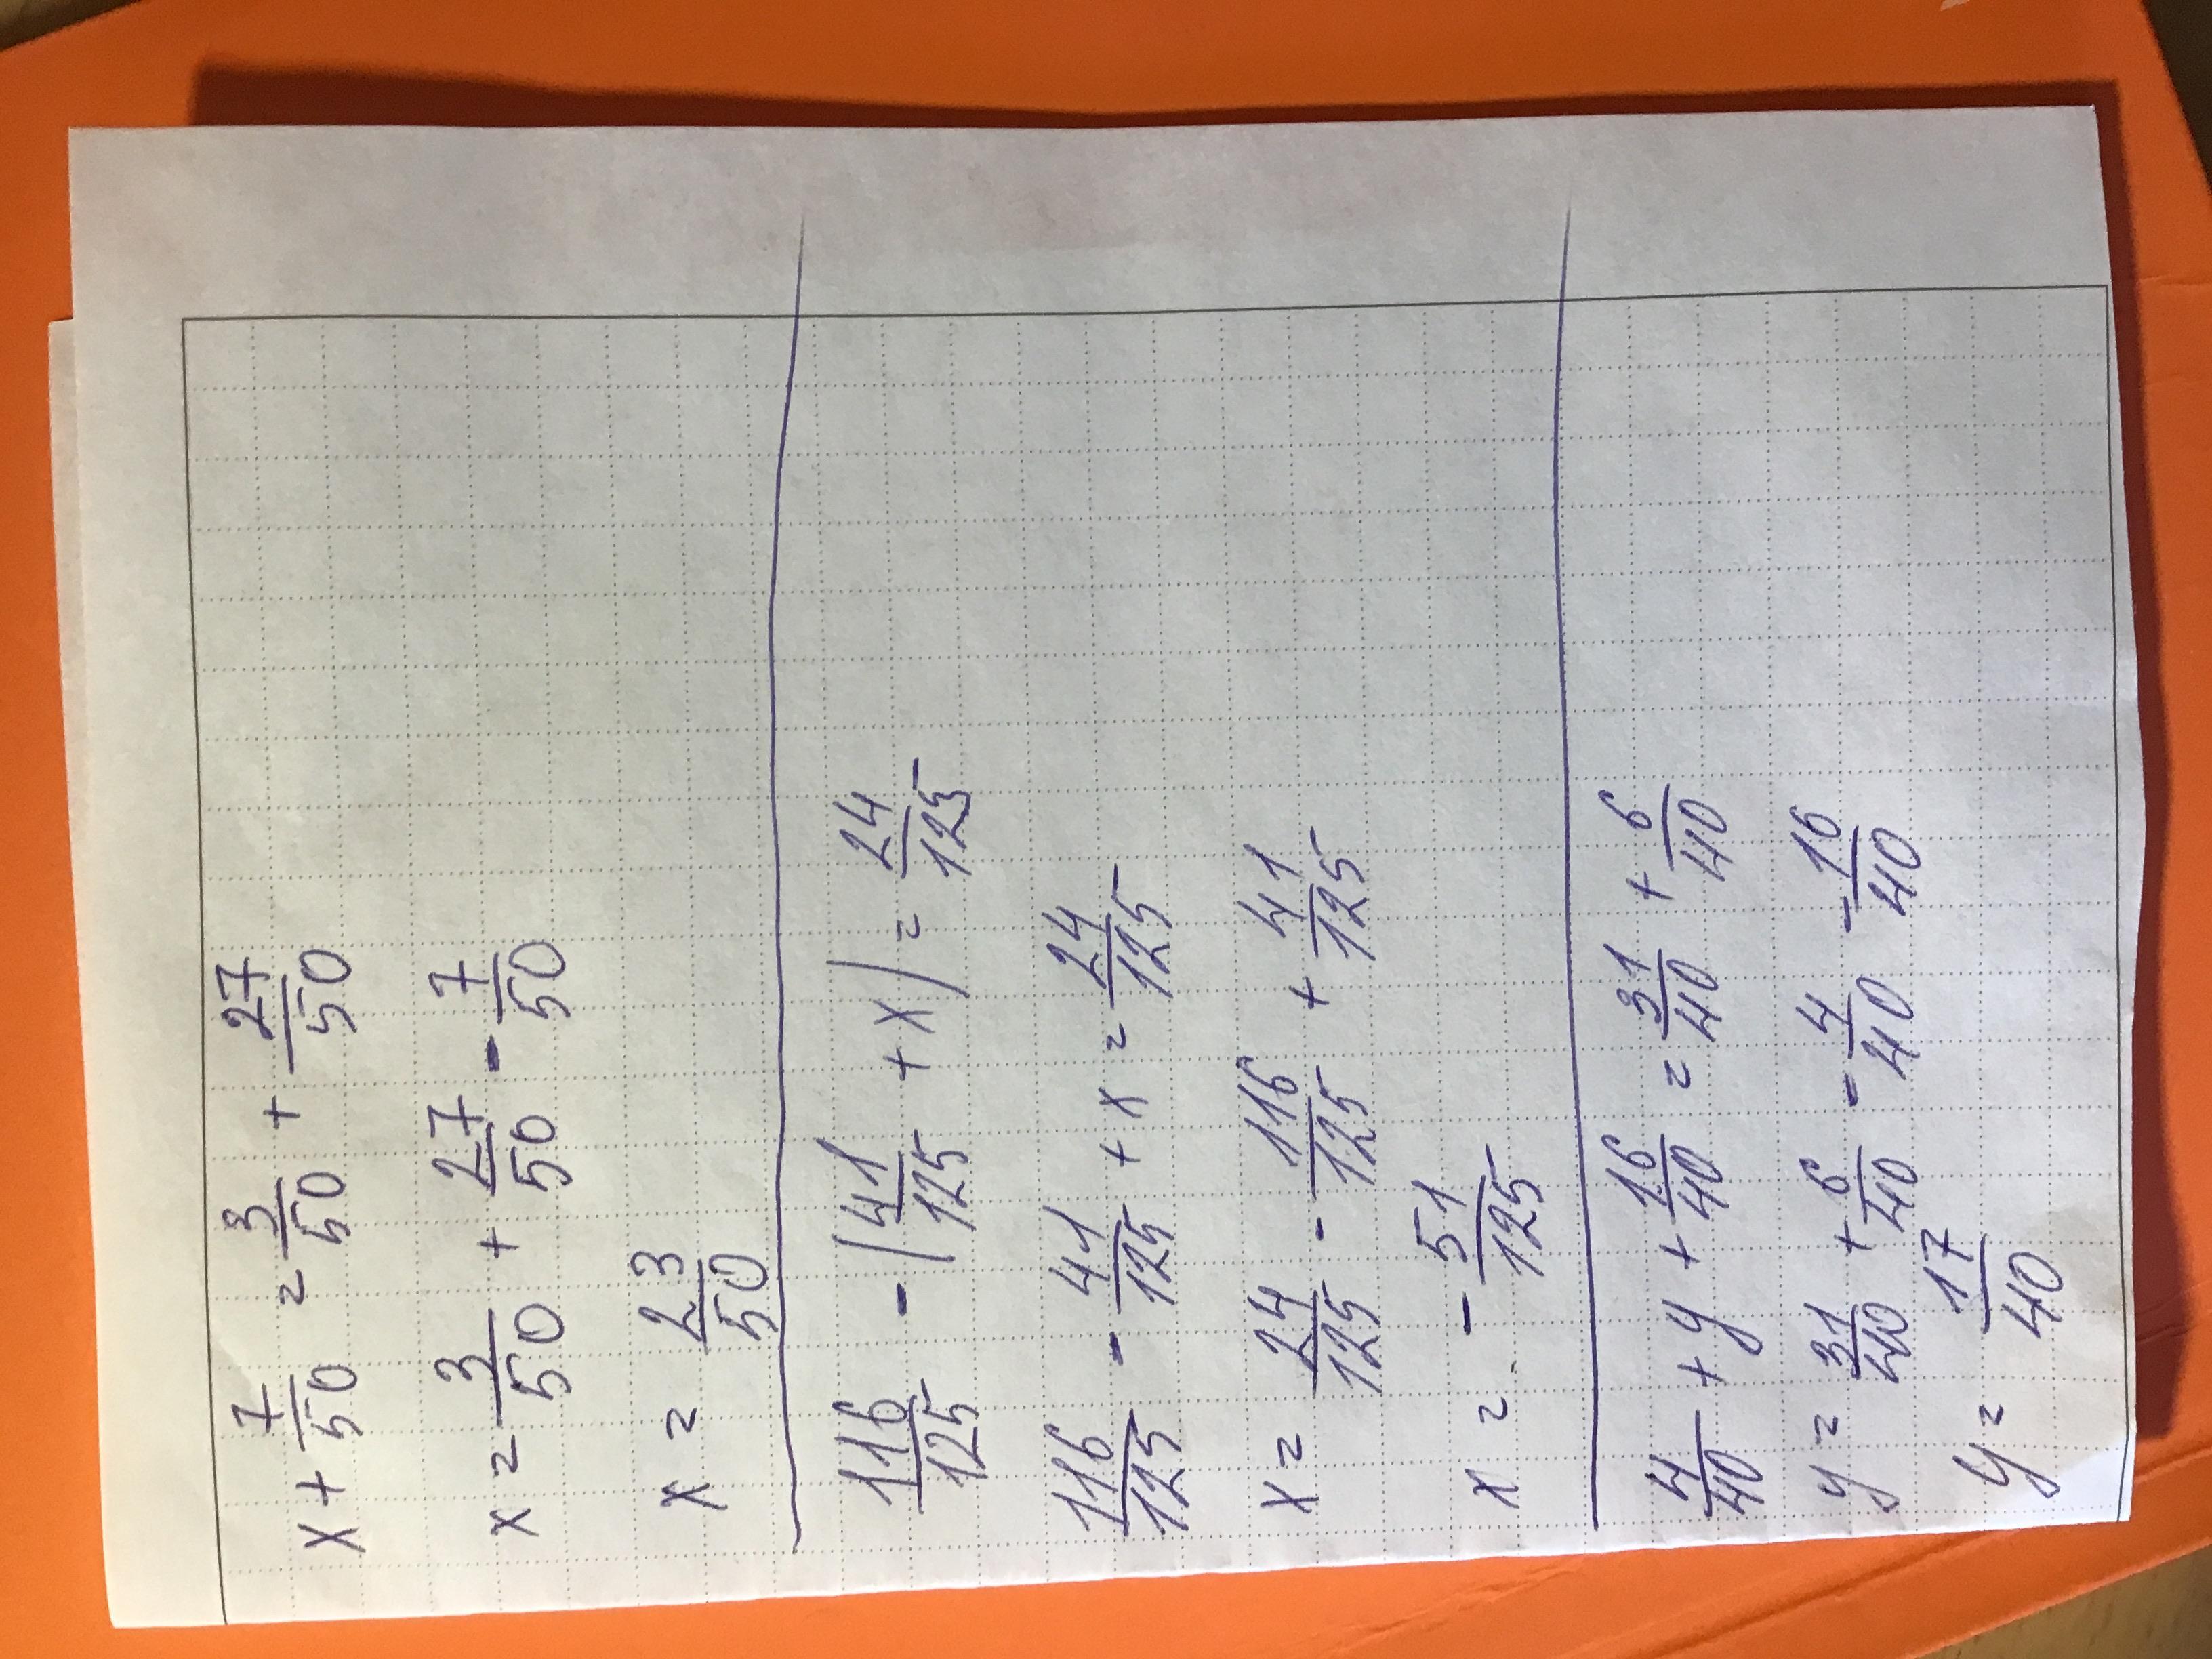 x + 7/50 = 3/50 + 27/50
x = 3/50 + 27/50 - 7/50
x = 23/50
116/125 - (41/125 + x) = 24/125
116/125 - 41/125 + x = 24/125
x = 24/125 - 116/125 + 41/125
x = - 51/125
4/40 + y + 16/40 = 31/40 + 6/40
y = 31/40 + 6/40 - 4/40 - 16/40
y = 17/40